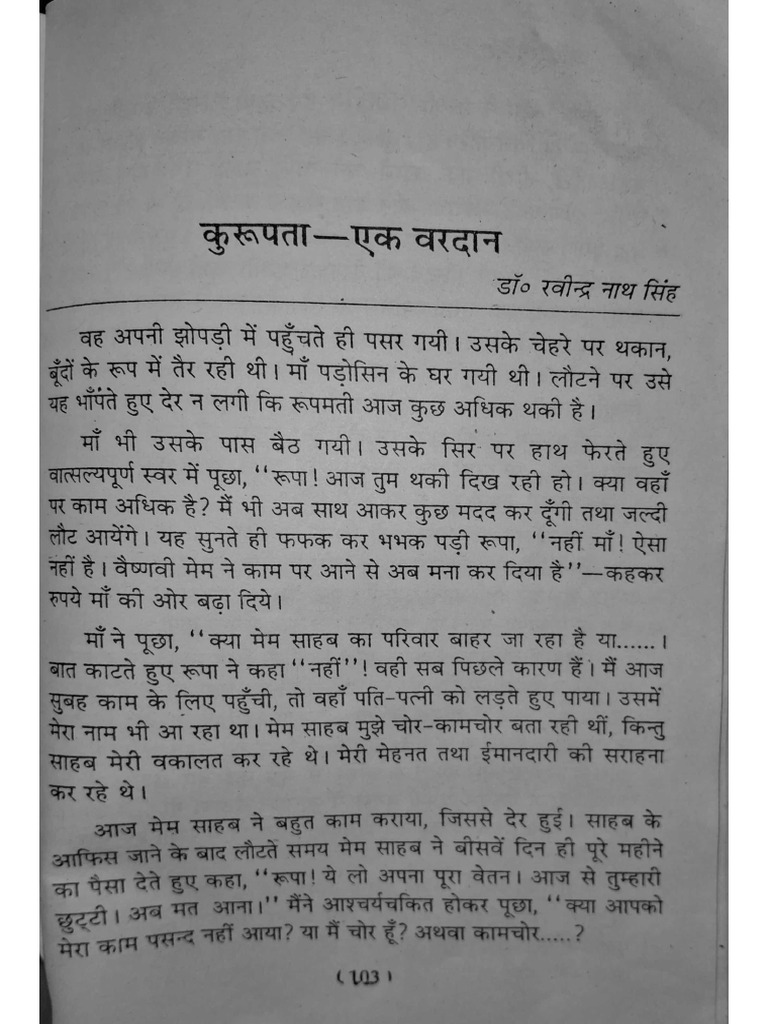 कुरूपता—एक वरदान
डॉ० रवीन्द्र नाथ सिंह
वह अपनी झोपड़ी में पहुँचते ही पसर गयी। उसके चेहरे पर थकान,
बूँदों के रूप में तैर रही थी। माँ पड़ोसिन के घर गयी थी। लौटने पर उसे
यह भाँपते हुए देर न लगी कि रूपमती आज कुछ अधिक थकी है।
माँ भी उसके पास बैठ गयी। उसके सिर पर हाथ फेरते हुए
वात्सल्यपूर्ण स्वर में पूछा, ‘‘रूपा! आज तुम थकी दिख रही हो। क्या वहाँ
पर काम अधिक है? मैं भी अब साथ आकर कुछ मदद कर दूँगी तथा जल्दी
लौट आयेंगे। यह सुनते ही फफक कर भभक पड़ी रूपा, ‘‘नहीं माँ! ऐसा
नहीं है। वैष्णवी मेम ने काम पर आने से अब मना कर दिया है’’—कहकर
रुपये माँ की ओर बढ़ा दिये।
माँ ने पूछा, ‘‘क्या मेम साहब का परिवार बाहर जा रहा है या......।
बात काटते हुए रूपा ने कहा ‘‘नहीं’’! वही सब पिछले कारण हैं। मैं आज
सुबह काम के लिए पहुँची, तो वहाँ पति-पत्नी को लड़ते हुए पाया। उसमें
मेरा नाम भी आ रहा था। मेम साहब मुझे चोर-कामचोर बता रही थीं, किन्तु
साहब मेरी वकालत कर रहे थे। मेरी मेहनत तथा ईमानदारी की सराहना
कर रहे थे।
आज मेम साहब ने बहुत काम कराया, जिससे देर हुई। साहब के
आफिस जाने के बाद लौटते समय मेम साहब ने बीसवें दिन ही पूरे महीने
का पैसा देते हुए कहा, ‘‘रूपा! ये लो अपना पूरा वेतन। आज से तुम्हारी
छुट्टी। अब मत आना।’’ मैंने आश्चर्यचकित होकर पूछा, ‘‘क्या आपको
मेरा काम पसन्द नहीं आया? या मैं चोर हूँ? अथवा कामचोर.....?
(103)